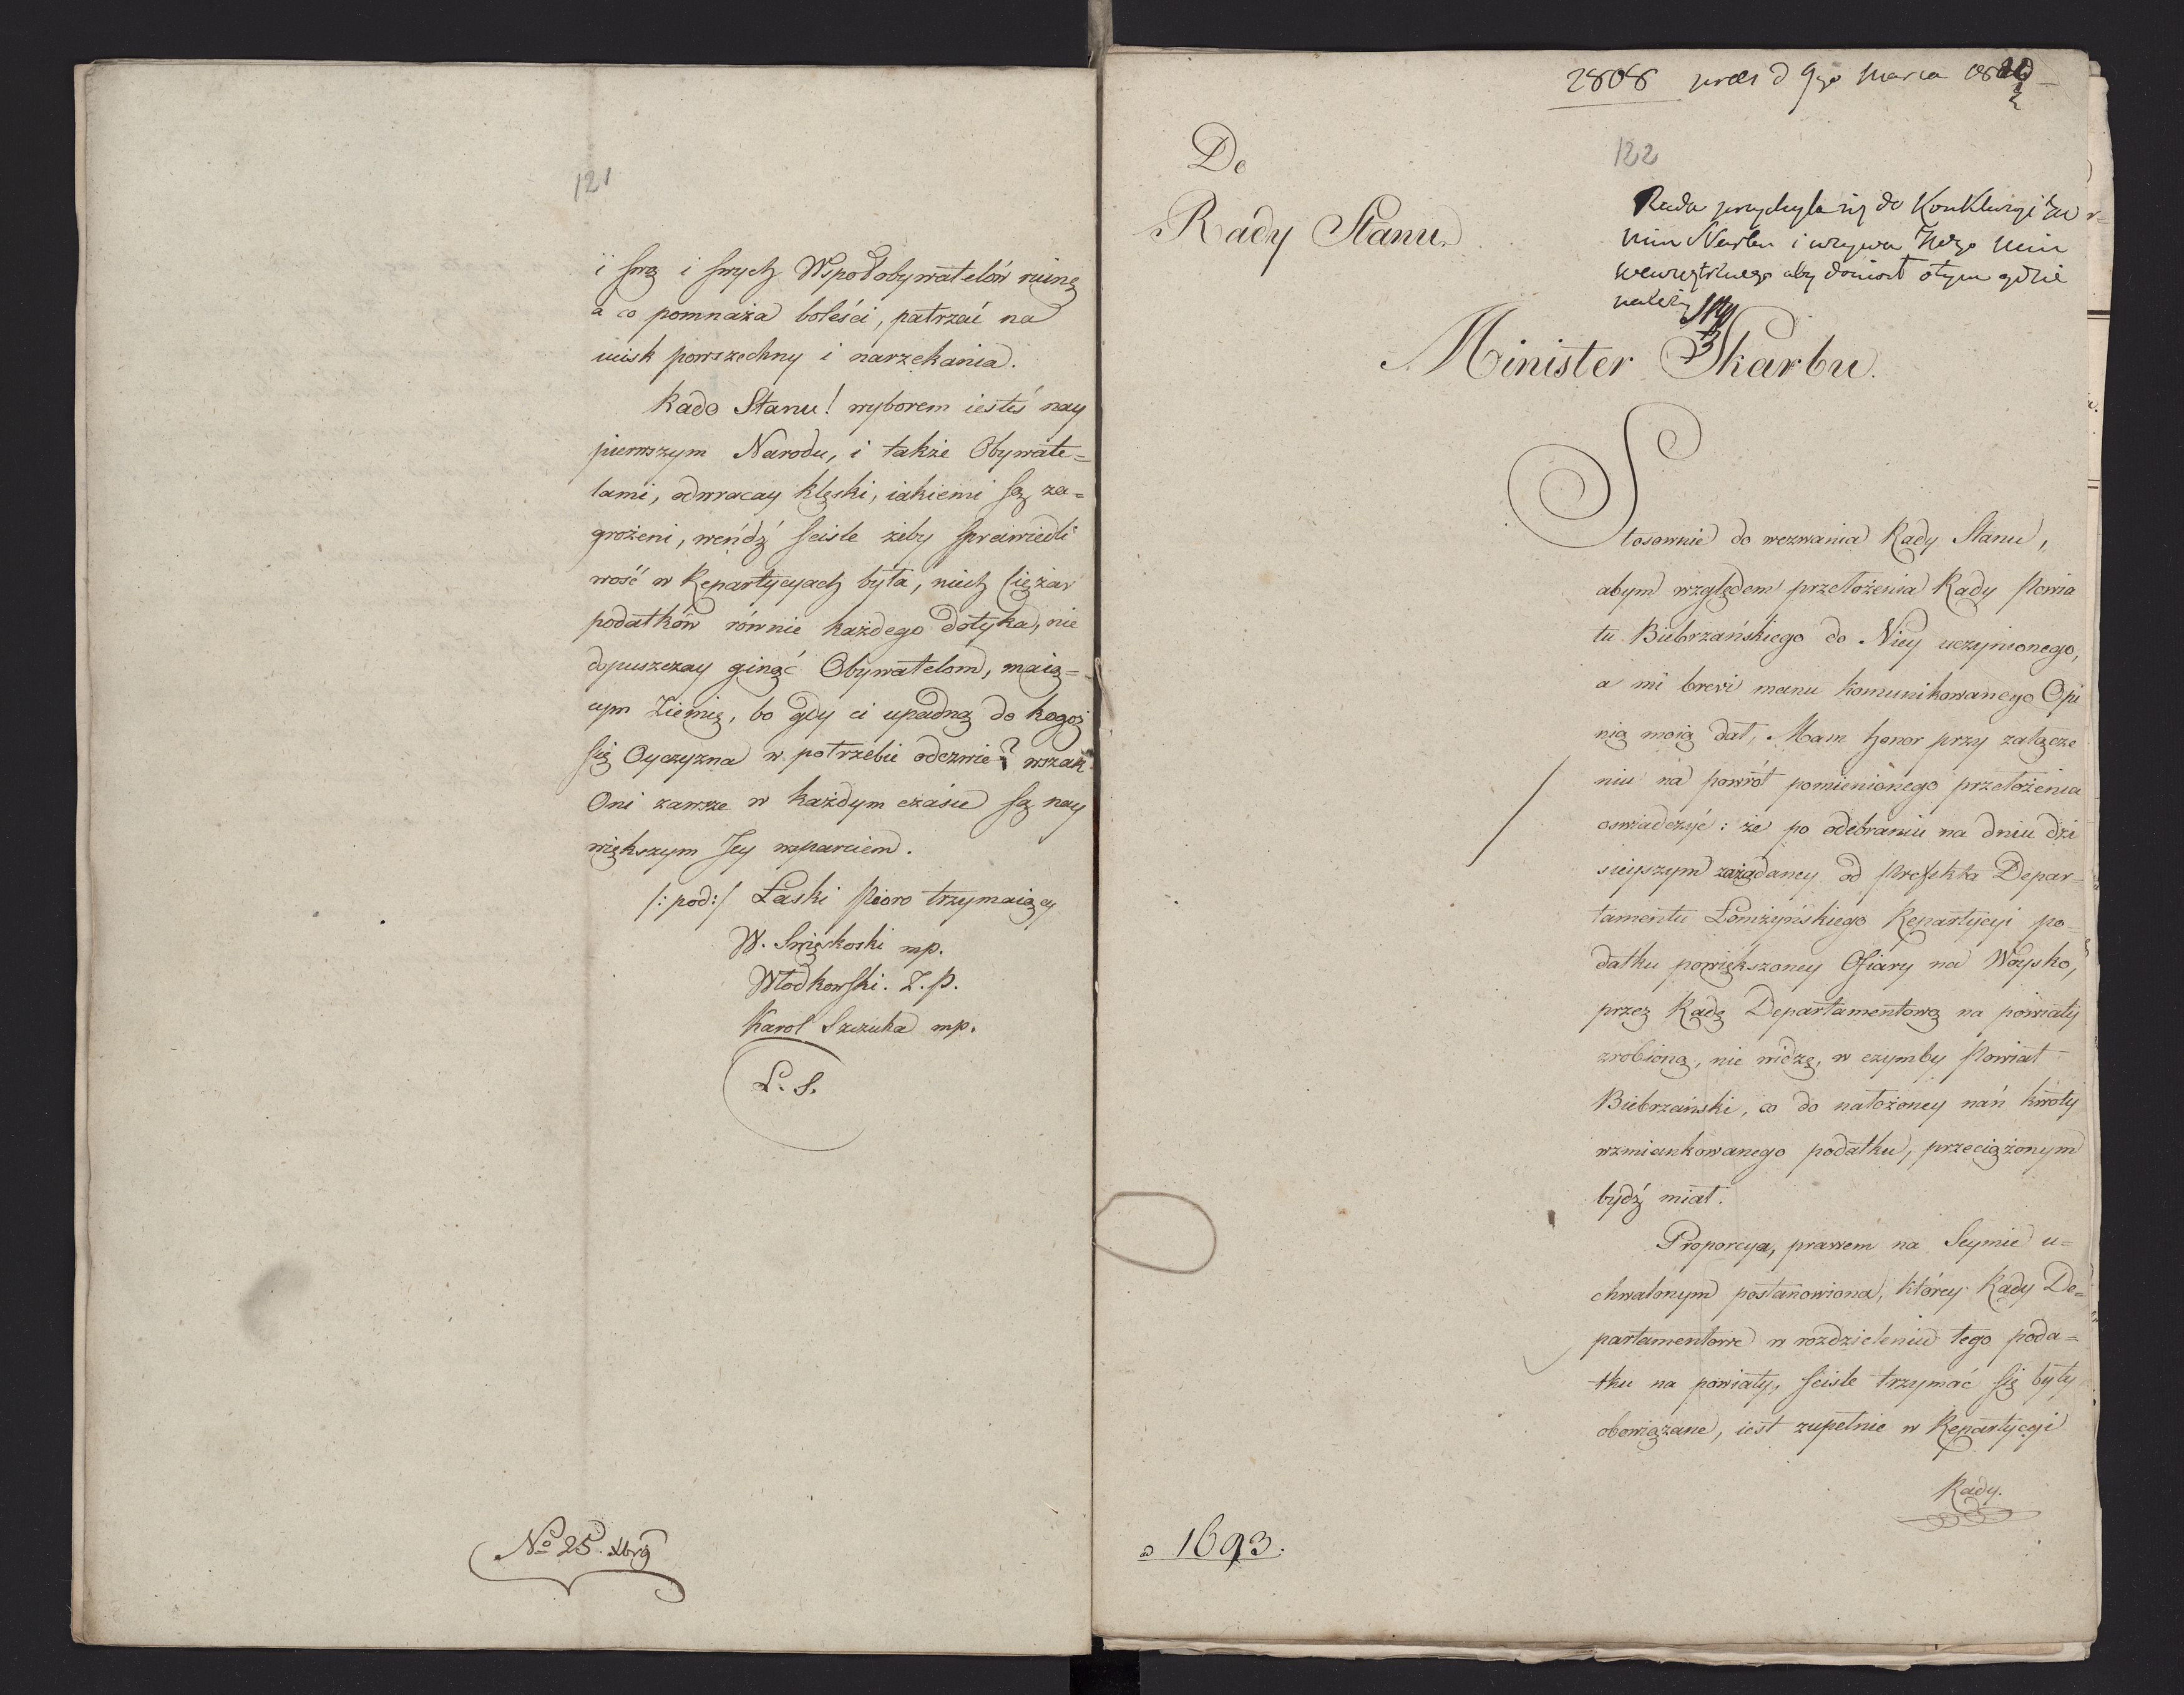 121
i swą i swych Wspołobywatelów ruinę
a co pomnaża boleści, patrzać na
ucisk powszechny i narzekania.
Rado Stanu! wyborem iesteś nay
pierwszym Narodu, i także Obywate=
lami, odwracay klęski, iakiemi są za=
grożeni, weńdź scisle żeby sprawiedli
wość w Repartycyach była, niech ciężar
podatków równie każdego dotyka, nie
dpuszczay ginąć Obywatelom, maią=
cym Ziemię, bo gdy ci upadną do kogoż
się Oyczyzna w potrzebie odezwie? wszak
Oni zawsze w każdym czasie są nay
większym Jey wsparciem.
/:pod:/ Łaski Pioro trzymaiący
W. Swięskoski mp.
Włodkowski. Z. P.
Karol Szczuka mp.
L. S.
No 25. xbrą
2808 prees d 9go Marca
122
Do
Rady Stanu.
Rada przychyla się do Konkluzyi
Min Skarbu i wzywa Mini
wewnętrznego aby doniosł o tym gdzie
należy
Minister Skarbu.
Stosownie do wezwania Rady Stanu,
abym względem przełożenia Rady Powia
tu Biebrzańskiego do Niey uczynionego,
a mi brevi manu komunikowanego Opi
nią moią dał, Mam honor przy załącze
niu na powrót pomienionego przełożenia
oswiadczyć: że po odebraniu na dniu dzi
sieyszym zażądaney od Prefekta Depar-
tamentu Łomżyńskiego Repartycyi po-
datku powiększoney Ofiary na Woysko,
przez Radę Departamentową na powiaty
zrobioną, nie widzę, w czymby Powiat
Biebrzański, co do nałożoney nań kwoty
wzmiankowanego podatku, przeciążonym
bydź miał.
Proporcya, prawem na Seymie u=
chwalonym postanowiona, którey Rady De=
partamentowe w rozdzieleniu tego poda=
tku na powiaty, scisle trzymać się były
obowiązane, iest zupełnie w Repartycyi
Rady.
1693.